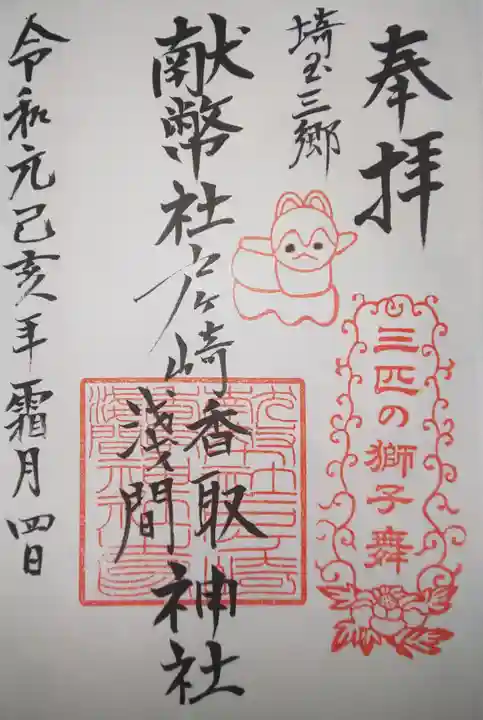 奉拝
三匹の獅子舞
埼玉三郷
献幣社戸ヶ崎香取
浅間
神社
令和元己亥年霜月四日